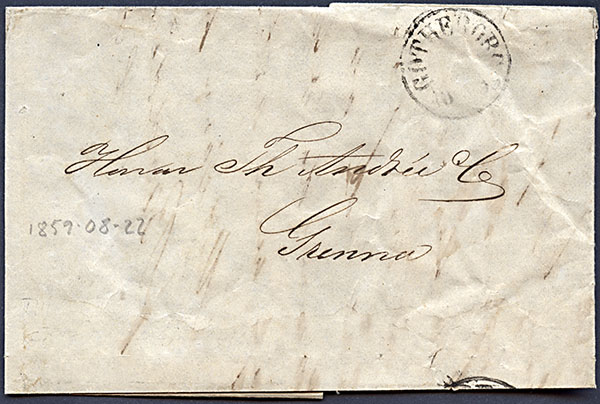 GÖTHEBORG
Herrar Th Andrée & C
Grenna
1859-08-22